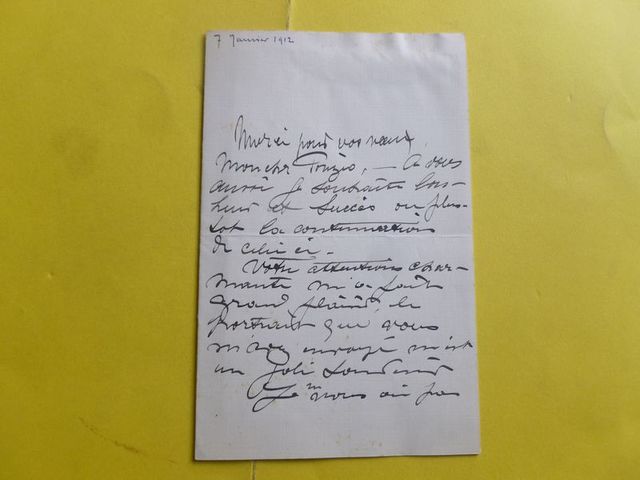 7 Janvier 1912
Merci pour vos vœux,
Mon cher — A vous
aussi je souhaite bon-
heur et succès ou plu-
tot la continuation
de celui ci. —
Votre attention char-
mante m'a fait
grand plaisir, le
portrait que vous
m'avez envoyé m'est
un joli souvenir
Je ne vous ai pas